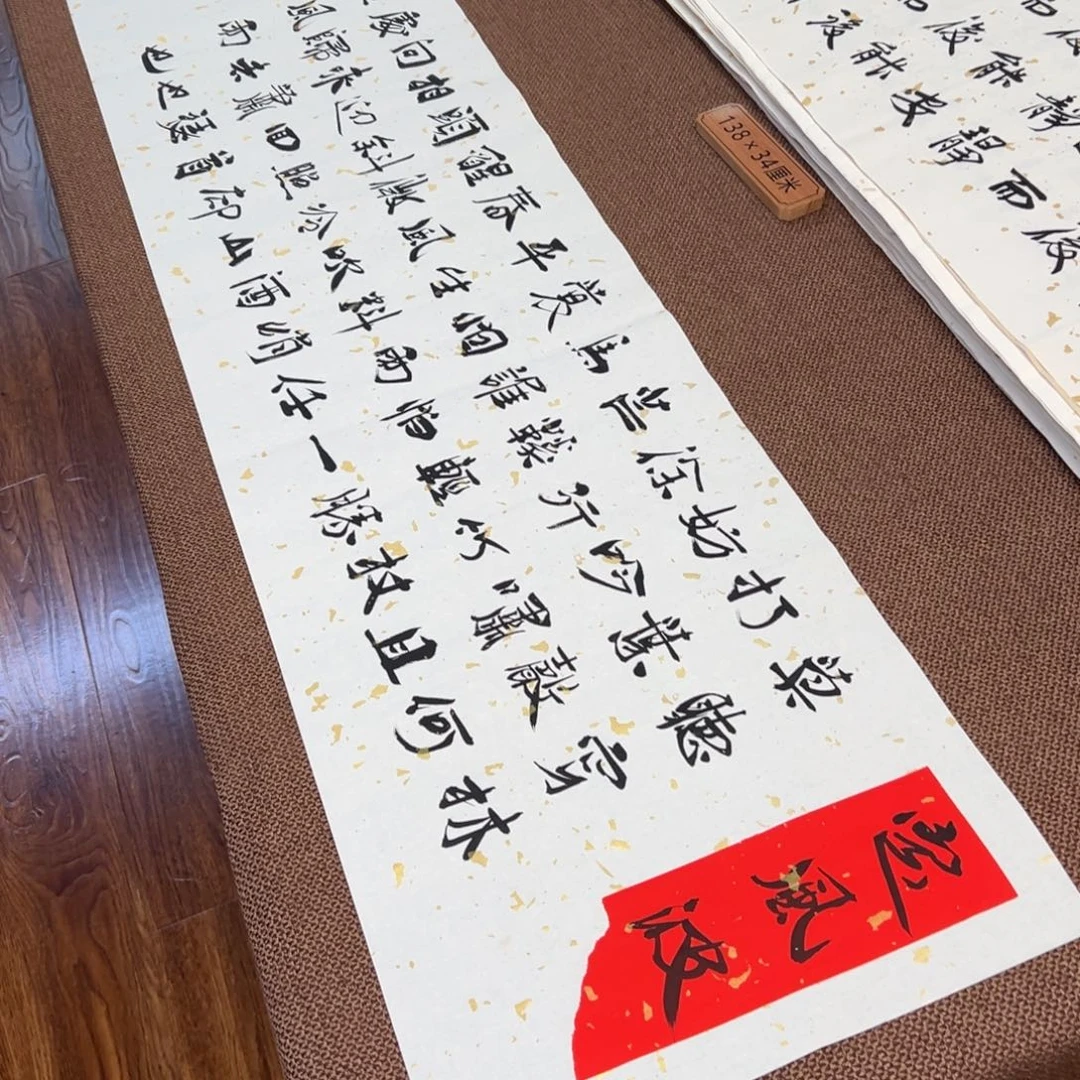 定風波
莫聽穿林
打葉聲何
妨吟嘯且
徐行竹杖
芒鞋輕勝
馬誰怕一
蓑烟雨任
平生料峭
春風吹酒
醒微冷山
頭斜照却
相迎回首
向來蕭瑟
處歸去也
風雨也
138×34厘米
后
而后
后能静
能安
静而后